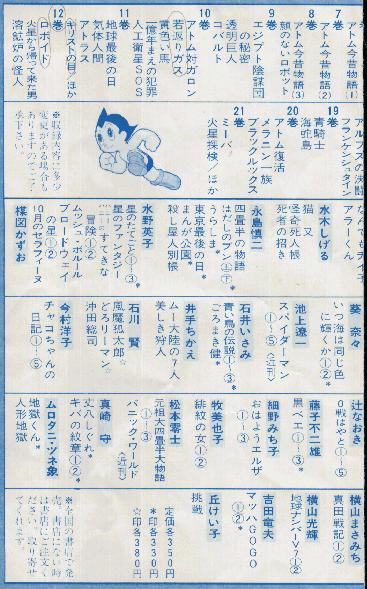 7巻
アトム今昔物語(1)
8巻
アトム今昔物語(2)
アトム今昔物語(3)
頭のないロボット
9巻
エジプト陰謀団
の秘密
透明巨人
コバルト
10巻
アトム対ガロン
若返りガス
黄色い馬
一億年まえの犯罪
人工衛星SOS
11巻
地球最後の日
気体人間
アトラス
キリストの目/ほか
12巻
ロボイド
火星から帰って来た男
溶鉱炉の怪人
アルプスの決闘
フランケンシュタイン
19巻
青騎士
海蛇島
20巻
アトム復活
メラニン一族
ブラックルックス
21巻
ミーバ
火星探検/ほか
※収録内容に多少
変更がある場合も
ありますのでご了
承下さい。
なんでもチイ子
アケミくん
水木しげる
猫又
怪奇死人帳
死者の招き
永島慎二
四畳半の物語
はだしのブン(上)(下)*
うらしま*
東京最後の日*
まんが公園*
殺し屋人別帳
水野英子
星のたてごと①~③*
星のファンタジー
すてきな
冒険①②
ムッシュ・ポールル
ブロードウェイ
の星①②
10月のセラフィーヌ
楳図かずお
葵 奈々
いつ海は同じ色
に輝くか①②*
池上遼一
スパイダーマン
①~⑤(近刊)
石井いさみ
青い鳥の伝説①~③*
ごろまき健*
井手ちかえ
ムー大陸の7人
美しき狩人
石川 賢
風魔狐太郎☆
どろリーマン☆
沖田総司
今村洋子
チャコちゃんの
日記①~⑤
辻なおき
0戦はやと①~⑤
藤子不二雄
黒ベエ①~③*
細野みち子
おはようエルザ
①~③
牧美也子
緋紋の女①②
松本零士
元祖大四畳半大物語
①~③
パニック・ワールド
(近刊)
真崎 守
丈八しぐれ*
キバの紋章①②*
ムロタニ・ツネ象
地獄くん*
人形地獄
横山まさみち
真田戦記①②
横山光輝
地球ナンバーV7①②
吉田竜夫
マッハGOGO
①②*
丘けい子
挑戦
定価各350円
*印各330円
☆印各380円
※全国の書店で発
売。書店にない時
は書店にご注文く
ださい。お取り寄せ
てくれます。